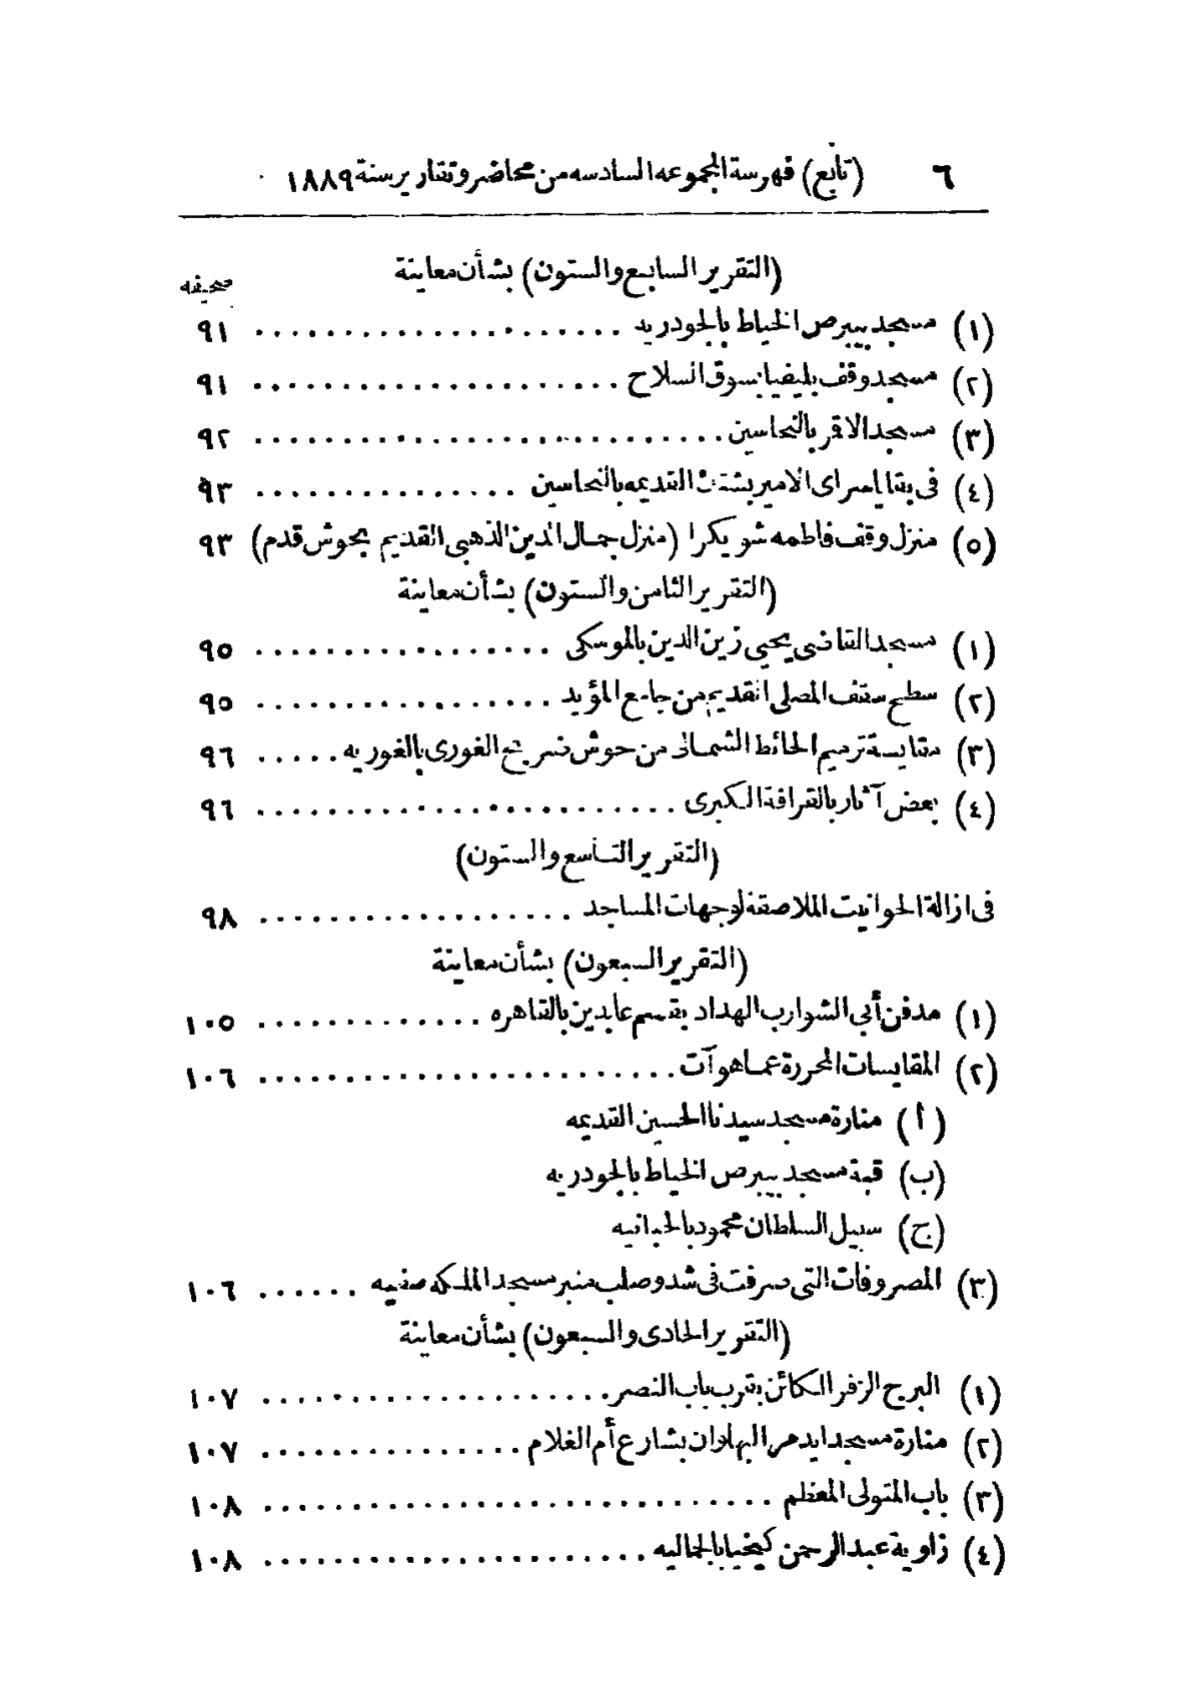 ٦ (تابع) فهرسة المجموعه السادسه من محاضر وتقارير سنة ١٨٨٩
صحيفه
(التقرير السابع والستون) بشأن معاينة
(١) مسجد بيبرص الخياط بالجودريه ٩١
(٢) مسجد وقف بليفيا بسوق السلاح ٩١
(٣) مسجد الاقمر بالنحاسين ٩٢
(٤) فى بقايا سراى الامير بشتك القديمه بالنحاسين ٩٣
(٥) منزل وقف فاطمه شويكرا (منزل جمال الدين الذهبى القديم بحوش قدم) ٩٣
(التقرير الثامن والستون) بشأن معاينة
(١) مسجد القاضى يحيى زين الدين بالموسكى ٩٥
(٢) سطح سقف المصلى القديم من جامع المؤيد ٩٥
(٣) مقايسة ترميم الحائط الشمالى من حوش ضريح الغورى بالغوريه ٩٦
(٤) بعض آثار بالقرافة الكبرى ٩٦
(التقرير التاسع والستون)
فى ازالة الحوانيت الملاصقة لوجهات المساجد ٩٨
(التقرير السبعون) بشأن معاينة
(١) مدفن أبى الشوارب الهداد بقسم عابدين بالقاهره ١٠٥
(٢) المقايسات المحررة عما هو آت ١٠٦
(أ) منارة مسجد سيدنا الحسين القديمه
(ب) قبة مسجد بيبرص الخياط بالجودريه
(ج) سبيل السلطان محمود بالحبانيه
(٣) المصروفات التى صرفت فى شد وصلب منبر مسجد الملكه صفيه ١٠٦
(التقرير الحادى والسبعون) بشأن معاينة
(١) البرج الزفر الكائن بقرب باب النصر ١٠٧
(٢) منارة مسجد ايدمر البهلوان بشارع أم الغلام ١٠٧
(٣) باب المتولى المعظم ١٠٨
(٤) زاوية عبد الرحمن كيخيا بالجماليه ١٠٨